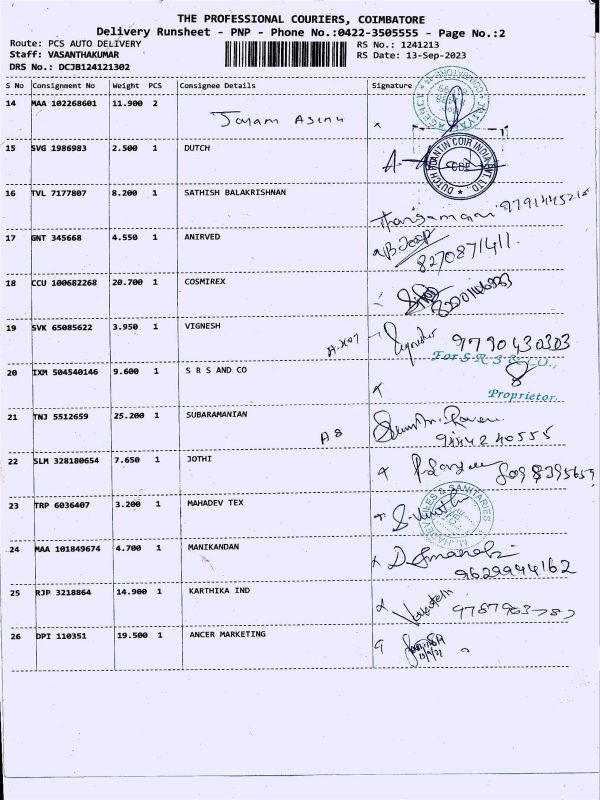 THE PROFESSIONAL COURIERS, COIMBATORE
Delivery Runsheet - PNP - Phone No.:0422-3505555 - Page No.:2
Route: PCS AUTO DELIVERY RS No.: 1241213
Staff: VASANTHAKUMAR RS Date: 13-Sep-2023
DRS No.: DCJB124121302
S No Consignment No Weight PCS Consignee Details Signature
14 MAA 102268601 11.900 2
15 SVG 1986983 2.500 1 DUTCH
16 TVL 7177807 8.200 1 SATHISH BALAKRISHNAN
Thangamani
17 GNT 345668 4.550 1 ANIRVED
8270871411
18 CCU 100682268 20.700 1 COSMIREX
19 SVK 65085622 3.950 1 VIGNESH
9790430303
For S R S & CO.,
20 IXM 504540146 9.600 1 S R S AND CO
Proprietor
21 TNJ 5512659 25.200 1 SUBARAMANIAN
A8
9444240555
22 SLM 328180654 7.650 1 JOTHI
23 TRP 6036407 3.200 1 MAHADEV TEX
24 MAA 101849674 4.700 1 MANIKANDAN
9629944162
25 RJP 3218864 14.900 1 KARTHIKA IND
26 DPI 110351 19.500 1 ANCER MARKETING